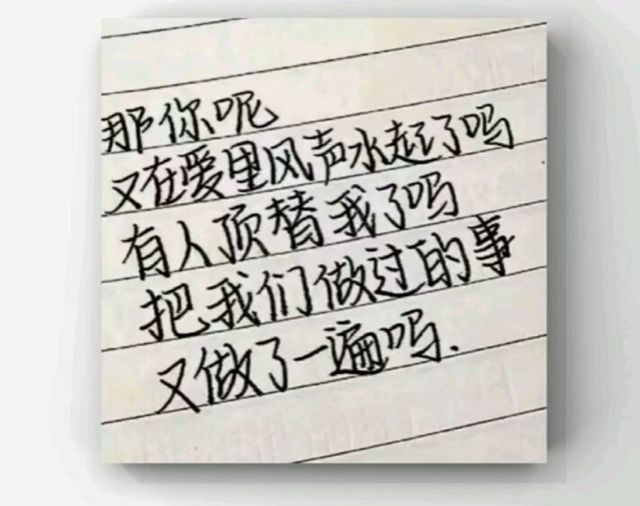 那你呢
又在爱里风声水起了吗
有人顶替我了吗
把我们做过的事
又做了一遍吗.